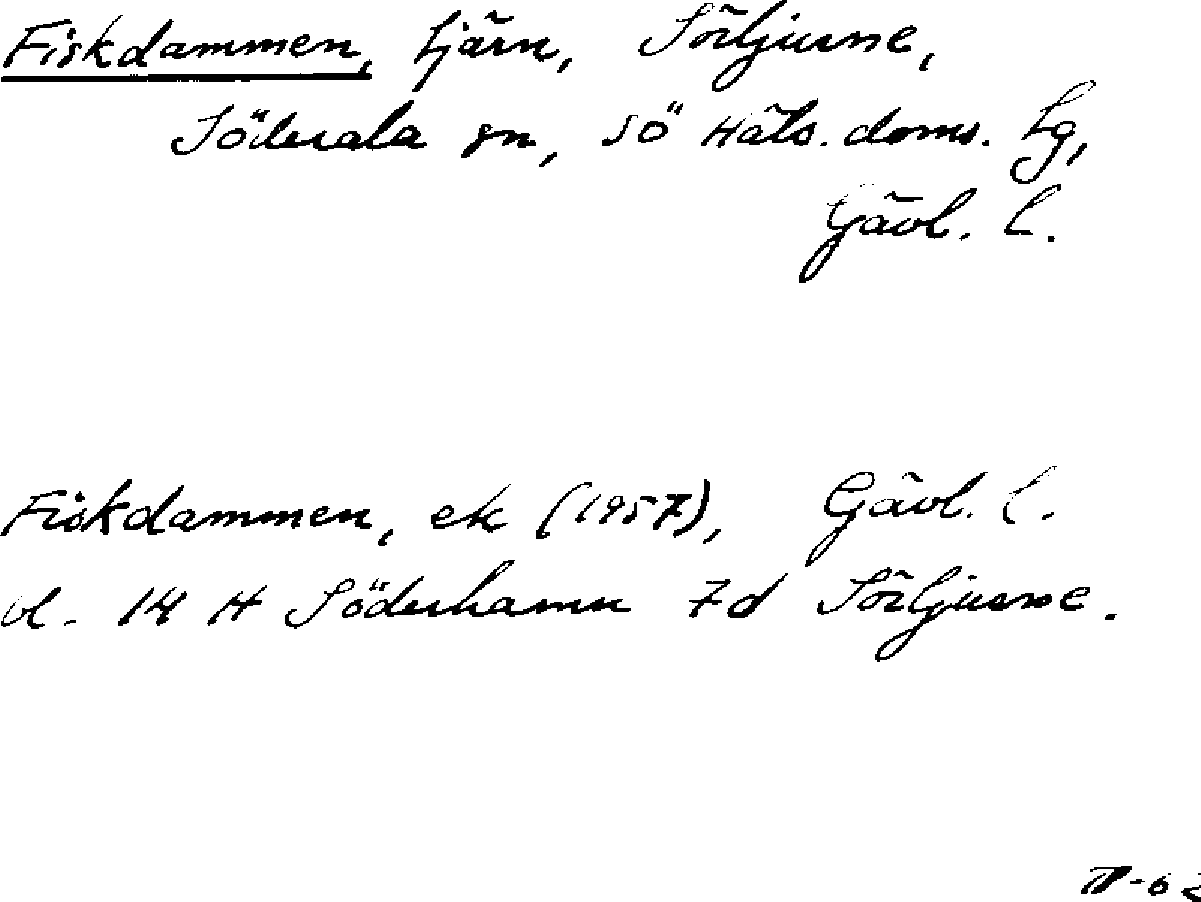 Fiskdammen, tjärn, Sörljusne,
Söderala sn, Sö Häls. doms. tg,
Gävl. l.
Fiskdammen, ek (1957), Gävl. l.
bl. 14 H Söderhamn 7d Sörljusne.